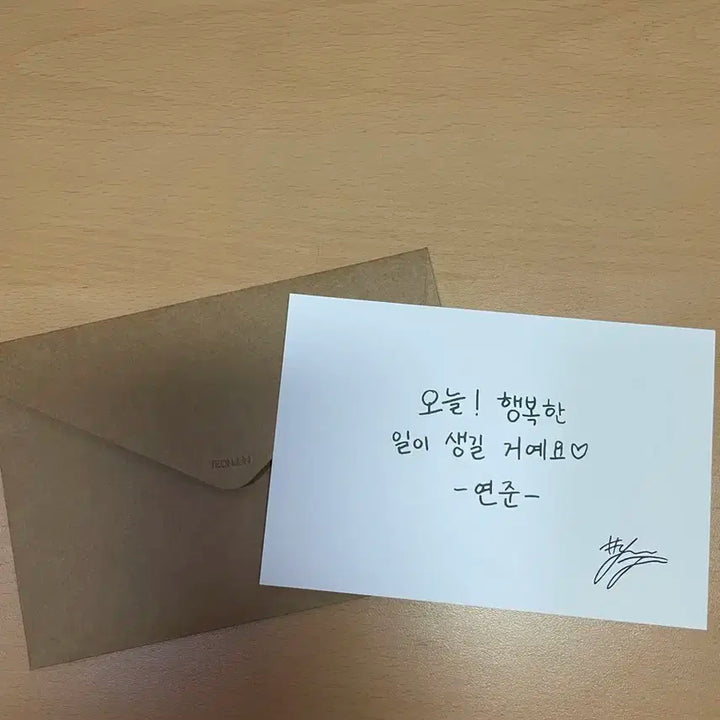 오늘! 행복한
일이 생길 거예요♡
-연준-